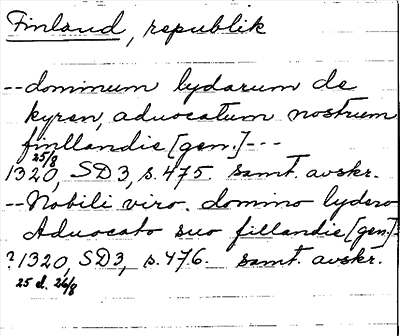 Finland, republik
--dominum lydarum de
kyren, aduocatum nostrum
finllandie [gen.]---
25/8
1320, SD3, s.475. samt. avskr.
--Nobili viro. domino lydero
Aduocato suo fillandie [gen.]-
?1320, SD3, s.476. samt. avskr.
25 d. 26/8